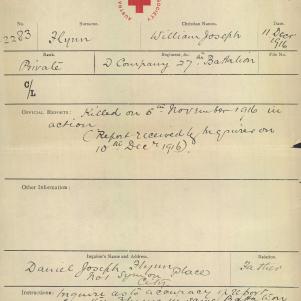 No. Surname. Christian Names. Date.
2283 Flynn William Joseph 11 Decr 1916
Rank. Regiment, &c. File No.
Private D Company 27th Battalion
C/L
OFFICIAL REPORTS: Killed on 5th November 1916 in
action
(Report received by Inquirer on
10th Decr 1916).
Other Information:
Inquirer's Name and Address. Relation
Daniel Joseph Flynn Father
No 1 Symon Place
City
Instructions: Inquire as to accuracy of report
in same Battalion